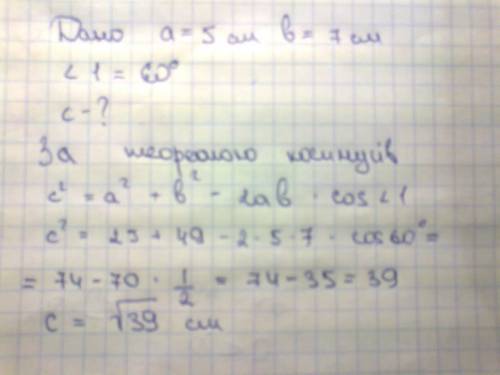 Дано a = 5 см b = 7 см
∠1 = 60°
c - ?
За теоремою косинусів
c² = a² + b² - 2ab · cos∠1
c² = 25 + 49 - 2·5·7 · cos60° =
= 74 - 70 · 1/2 = 74 - 35 = 39
c = √39 см